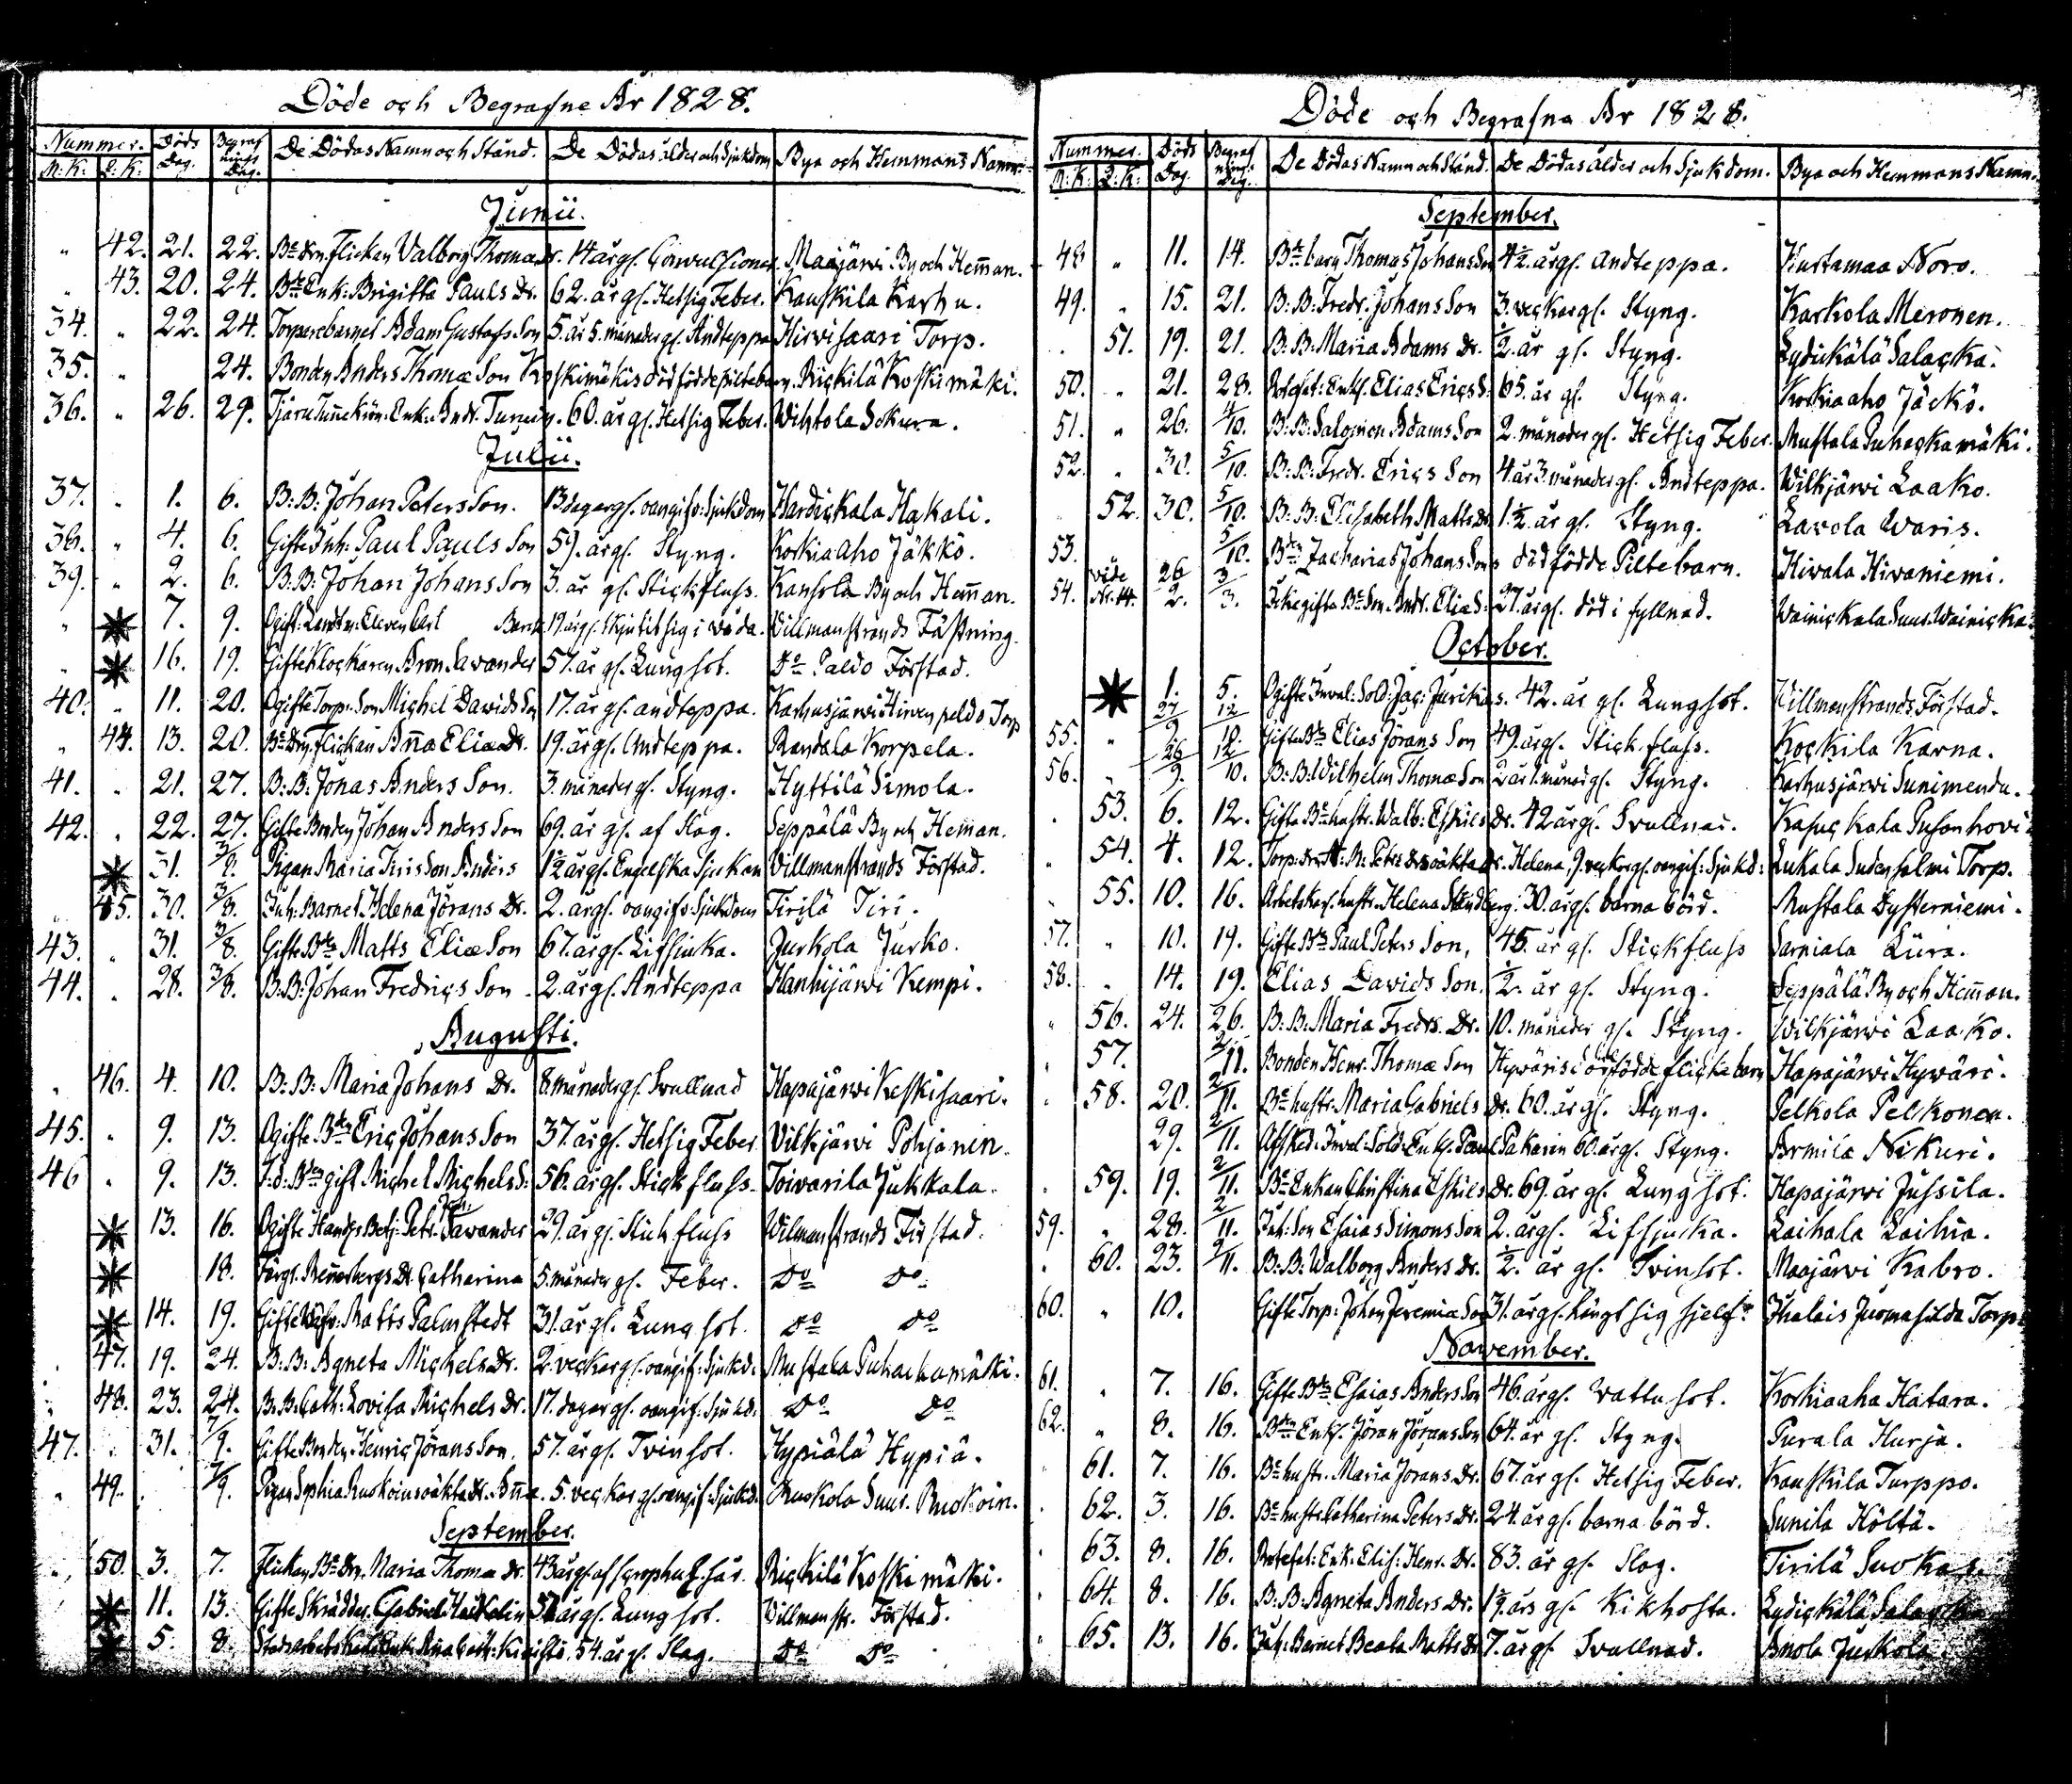 Döde och Begrafne År 1828.
Nummer. Döds Dag. Begrafnings Dag. De Dödas Namn och Stånd. De Dödas ålder och Sjukdom Bya och Hemmans Namn.
M: K: Q: K:
Junii.
" 42. 21. 22. Bde dr. Flickan Valborg Thomæ Dr. 14 år gl. Convulsioner. Maajärvi By och Heman.
" 43. 20. 24. Bde Enk: Brigitta Pauls Dr. 62. år gl. Hetsig Feber. Kauskila Karhu.
34. " 22. 24. Torparebarnet Adam Gustafs Son 5. år 5. månader gl. Andteppa Hirvisaari Torp.
35. " 24. Bonden Anders Thomæ Son Koskimäkis dödfödde piltebarn. Rickilä Koskimäki.
36. " 26. 29. Enk: Andr. 60. år gl. Hetsig Feber. Wihtola Sokura.
Julii.
37. " 1. 6. B: B: Johan Peters Son. 13 dagar gl. oangifv: Sjukdom Hardickala Hakali.
38. " 4. 6. Gifte Inh: Paul Pauls Son 59. år gl. Styng. Korkiaaho Jäkkö.
39. " 2. 6. B: B: Johan Johans Son 3. år gl. Stickfluss. Kansola By och Heman.
" 7. 9. Ogift: Landtm: Eleven Carl 19 år gl. Skjutit sig i våda. Villmanstrands Fästning.
" 16. 19. Gifte Klockaren Aron Savander 57. år gl. Lungsot. Do Paldo Förstad.
40. " 11. 20. Ogifte Torp: Son Michel Davids Son 17. år gl. andteppa. Karhusjärvi Hirvenpeldo Torp
" 44. 13. 20. Bde Dr. Flickan Anna Eliæ Dr. 19. år gl. Andteppa. Randala Korpela.
41. " 21. 27. B: B: Jonas Anders Son. 3. månader gl. Styng. Hyttilä Simola.
42. " 22. 27. Gifte Bonden Johan Anders Son 69. år gl. af Slag. Seppälä By och Heman.
31. 3/8. Pigan Maria Tiris Son Anders 1½ år gl. Engelska Sjukan Villmanstrands Förstad.
" 45. 30. 3/8. Inh: Barnet Helena Jörans Dr. 2. år gl. oangifv: Sjukdom Tirilä Tiri.
43. " 31. 3/8. Gifte Bde Matts Eliæ Son 67. år gl. Lifsjuka. Jurkola Jurko.
44. " 28. 3/8. B: B: Johan Fredrics Son. 2. år gl. Andteppa Hanhijärvi Kempi.
Augusti.
" 46. 4. 10. B: B: Maria Johans Dr. 8. månader gl. Svullnad Hapajärvi Keskisaari.
45. " 9. 13. Ogifte Bde Eric Johans Son 37. år gl. Hetsig Feber Vilkjärvi Pohjanin.
46 " 9. 13. gift Michel Michels S: 56. år gl. Stickfluss. Toivarila Jukkala.
13. 16. Ogifte Handls Betj: Petr. Joh: Savander 29. år gl. Stickfluss Wilmanstrands Förstad.
18. Färgf. Rennerbergs Dr Catharina 5. månader gl. Feber. Do Do
14. 19. Gifte Matts Palmstedt 31. år gl. Lungsot. Do Do
" 47. 19. 24. B: B: Agneta Michels Dr. 2. veckor gl. oangif: Sjukd: Mustala Puhackamäki.
" 48. 23. 24. B: B: Cath: Lovisa Michels Dr. 17. dagar gl. oangif: Sjukd: Do Do
47. " 31. 7/9. Gifte Bonden Henric Jörans Son. 57. år gl. Tvinsot. Hypiälä Hypiä.
" 49. 7/9. Pigan Sophia Ruokoins oäkta Dr. Anna. 5. veckor gl. oangif: Sjukd: Ruokola Suur Ruokoin.
September.
" 50. 3. 7. Flickan Bde Dr. Maria Thomæ Dr. 43 år gl. af Rickilä Koskimäki.
11. 13. Gifte Skrädder. Gabriel 57 år gl. Lungsot. Villmanstr. Förstad.
5. 8. 54. år gl. Slag. Do Do
Döde och Begrafna År 1828.
Nummer. Döds Dag. Begrafnings Dag. De Dödas Namn och Stånd. De Dödas ålder och Sjukdom. Bya och Hemmans Namn.
M: K: Q: K:
September.
48 " 11. 14. Bde barn Thomas Johans Son 4½ år gl. andteppa. Hurtamaa Noro.
49. " 15. 21. B: B: Fredr. Johans Son 3. veckor gl. Styng. Karkola Meronen.
" 51. 19. 21. B: B: Maria Adams Dr. ½ år gl. Styng. Lydickälä Salacka.
50. " 21. 28. Enkl. Elias Erics S: 65. år gl. Styng. Korkiaaho Jäckö.
51. " 26. 4/10. B: B: Salomon Adams Son 2. månader gl. Hetsig Feber. Mustala Puhackamäki.
52. " 30. 5/10. B: B: Fredr. Erics Son 4 år 3. månader gl. Andteppa. Wilkjärvi Laako.
52. 30. 5/10. B: B: Elisabeth Matts Dr 1.½ år gl. Styng. Lavola Waris.
53. 5/10. Bden Zacharias Johans Sons dödfödde Piltebarn. Hivala Hivaniemi.
54. vide Nr. 14. 26/2. 3/3. Ickegifte Bde Son Andr. Eliæ S: 27. år gl. död i fyllnad. Wainickala Suur Wainicka
October.
1. 5. Ogifte Inval: Sold: Jac: Jurikas. 42. år gl. Lungsot. Villmanstrands Förstad.
55. " 27/9 12/10. Gifte Bde Elias Jörans Son 49. år gl. Stickfluss. Kockila Karna.
56. " 26/9. 12/10. B: B: Wilhelm Thomæ Son 2 år 1. månad gl. Styng. Karhusjärvi Sunimendu.
" 53. 6. 12. Gifte Bde hustr. Walb: Eskils Dr. 42 år gl. Svullnad. Kasuckala Pusonhovi
" 54. 4. 12. Helena, 9. veckor gl. oangif: Sjukd: Lukala Sudensalmi Torp.
" 55. 10. 16. Arbetskarl. hustr. Helena Standberg. 30. år gl. barnabörd. Mustala Dysterniemi.
57. " 10. 19. Gifte Bde Paul Peters Son, 45. år gl. Stickfluss Sarviala Liira.
58. " 14. 19. Elias Davids Son. ½. år gl. Styng. Seppälä By och Heman.
" 56. 24. 26. B: B: Maria Fredrs. Dr. 10. månader gl. Styng. Wilkjärvi Laako.
" 57. 2/11. Bonden Henr. Thomæ Son Hyväris dödfödde flickebarn Hapajärvi Hywäri.
" 58. 20. 2/11. Bde hustr. Maria Gabriels Dr. 60. år gl. Styng. Pelkola Pelkonen.
29. 2/11. Afsked: Inval: Sold: Enkl. Paul Pakarin 60. år gl. Styng. Armila Nikuri.
" 59. 19. 2/11. Bde Enkan Christina Eskils Dr. 69. år gl. Lungsot. Hapajärvi Jussila.
59. " 28. 2/11. Inh: Son Esaias Simons Son 2. år gl. Lifsjuka. Laihala Laihia.
" 60. 23. 2/11. B: B: Walborg Anders Dr. ½. år gl. Tvinsot. Maajärvi Kabro.
60. " 10. Gifte Torp: Johan Jeremiæ Son 31. år gl. hängt sig sjelf. Ihalais Juomasilda Torp
November.
61. " 7. 16. Gifte Bde Esaias Anders Son 46. år gl. Vattusot. Korkiaaho Hatara.
62. " 8. 16. Bde Enkl. Jöran Jörans Son 64. år gl. Styng. Purala Hurja.
" 61. 7. 16. Bde hustr. Maria Jörans Dr. 67. år gl. Hetsig Feber. Kauskila Turppo.
" 62. 3. 16. Bde hustr. Catharina Peters Dr. 24. år gl. barnabörd. Sunila Höltä.
" 63. 8. 16. Enk: Elis: Henr. Dr. 83. år gl. Slag. Tirilä Suokas.
" 64. 8. 16. B: B: Agneta Anders Dr. 1½. års gl. Kikhosta. Lydickälä Salacka
" 65. 13. 16. Inh: Barnet Beata Matts Dr 7. år gl. Svullnad. Anola Juckola